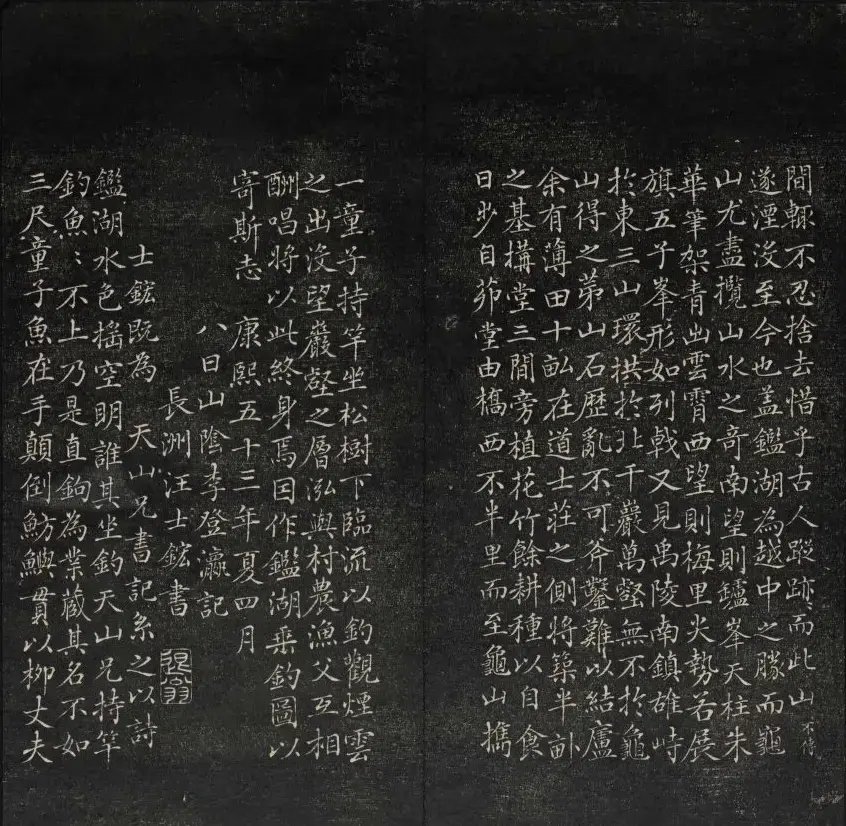 間輙不忍捨去惜乎古人蹤跡而此山不傳
遂湮没至今也盖鑑湖為越中之勝而龜
山尤盡攬山水之竒南望則鑪峯天柱朱
華筆架青出雲霄西望則梅里尖勢若展
旗五子峯形如列戟又見禹陵南鎮雄峙
於東三山環拱於北千巖萬壑無不於龜
山得之苐山石歴亂不可斧鑿難以結廬
余有薄田十畝在道士莊之側將築半畝
之基構堂三間旁植花竹餘耕種以自食
日步自茆堂由橋西不半里而至龜山携
一童子持竿坐松樹下臨流以釣觀煙雲
之出没望巖壑之層泓與村農漁父互相
酬唱將以此終身焉因作鑑湖垂釣圖以
寄斯志 康熙五十三年夏四月
八日山陰李登瀛記
長洲汪士鋐書
士鋐既為 天山兄書記系之以詩
鑑湖水色摇空明誰其坐釣天山兄持竿
釣魚〻不上乃是直鉤為業藏其名不如
三尺童子魚在手顛倒魴鱮貫以柳丈夫